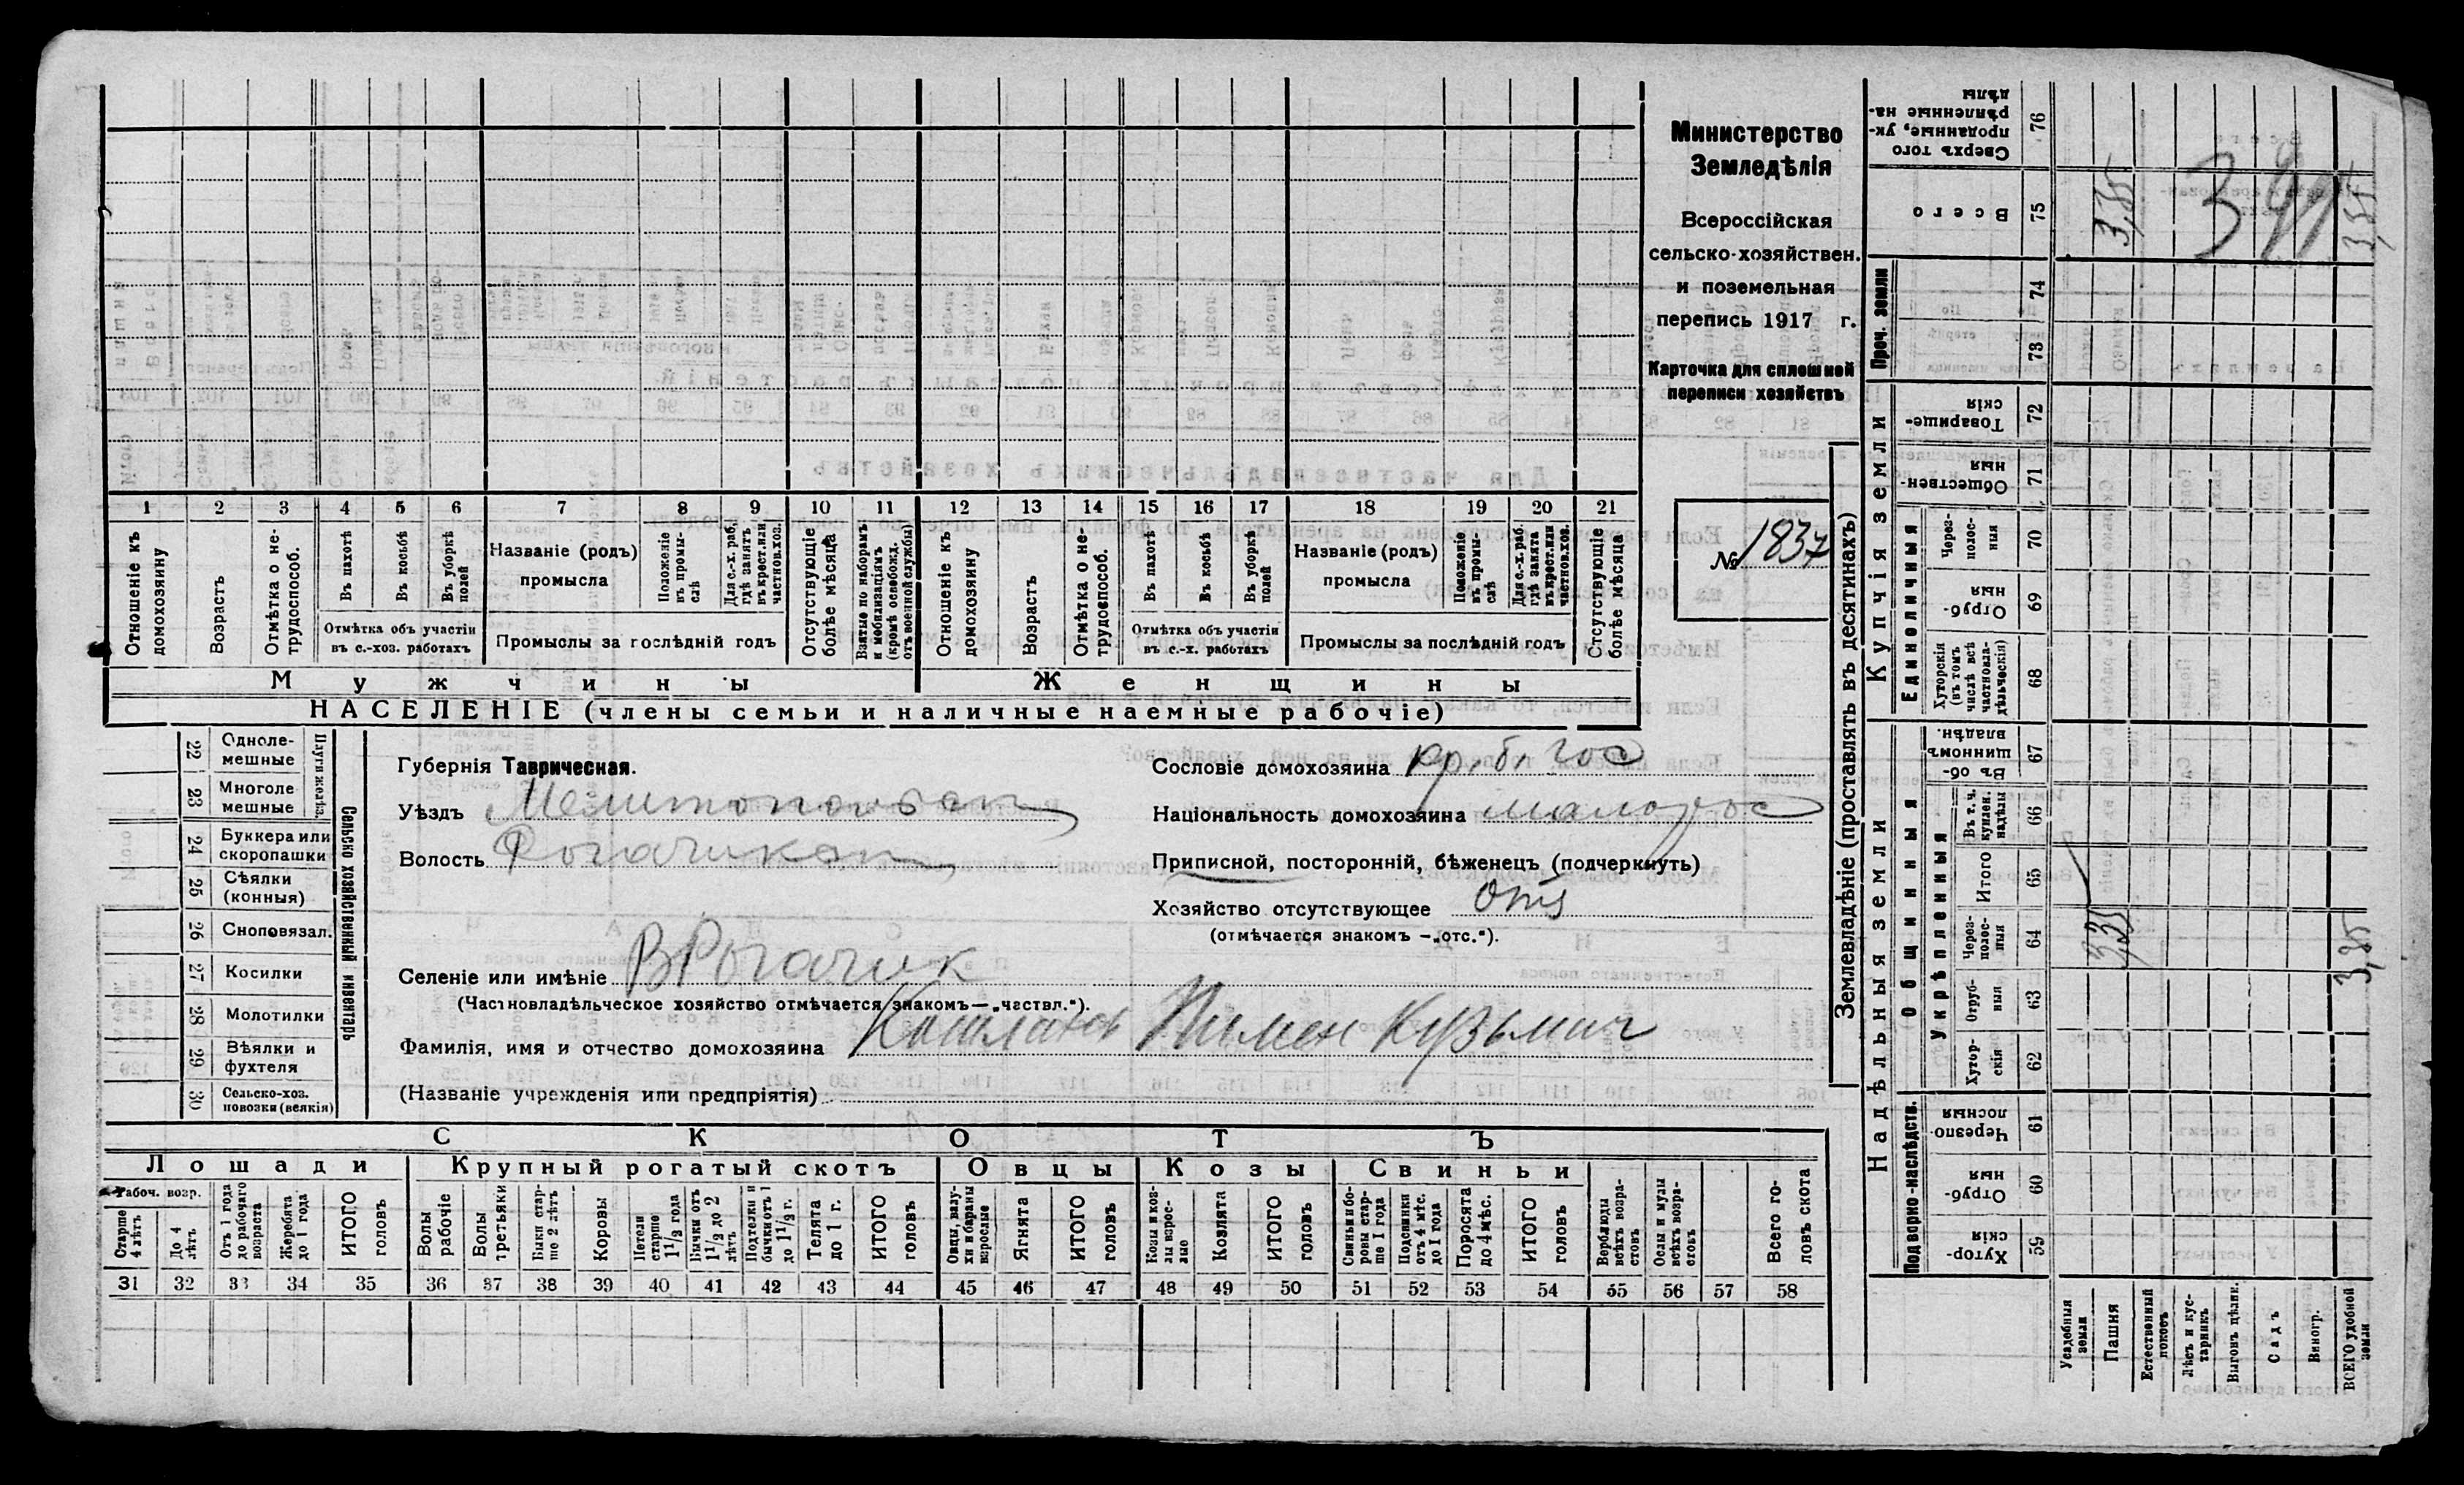 Министерство
Земледѣлія
Всероссійская
сельско-хозяйствен.
и поземельная
перепись 1917 г.
Карточка для сплошной
переписи хозяйствъ
№ 1837
1 2 3 4 5 6 7 8 9 10 11 12 13 14 15 16 17 18 19 20 21
Отношеніе къ домохозяину
Возрастъ
Отмѣтка о не-трудоспособ.
Въ пахотѣ
Въ косьбѣ
Въ уборкѣ полей
Отмѣтка объ участіи
въ с.-хоз. работахъ
Названіе (родъ)
промысла
Положеніе въ промы-слѣ
Для с.-х. раб, гдѣ занятъ въ крест. или частнов. хоз.
Промыслы за послѣдній годъ
Отсутствующіе болѣе мѣсяца
Взятые по наборамъ и мобилизаціямъ (кромѣ освобожд. отъ военной службы)
Отношеніе къ домохозяину
Возрастъ
Отмѣтка о не-трудоспособ.
Въ пахотѣ
Въ косьбѣ
Въ уборкѣ полей
Отмѣтка объ участіи
въ с.-х. работахъ
Названіе (родъ)
промысла
Положеніе въ промы-слѣ
Для с.-х. раб. гдѣ занята въ крест. или частнов. хоз.
Промыслы за послѣдній годъ
Отсутствующіе болѣе мѣсяца
Мужчины
Женщины
НАСЕЛЕНІЕ (члены семьи и наличные наемные рабочіе)
Сельско хозяйственный инвентарь
Плуги желѣз.
22 Одноле-мешные
23 Многоле мешные
24 Буккера или скоропашки
25 Сѣялки (конныя)
26 Сноповязал.
27 Косилки
28 Молотилки
29 Вѣялки и фухтеля
30 Сельско-хоз. повозки (всякія)
Губернія Таврическая.
Уѣздъ Мелитопольск
Волость Рогачикск
Селеніе или имѣніе В Рогачик
(Частновладѣльческое хозяйство отмѣчается знакомъ—„частвл.“).
Фамилія, имя и отчество домохозяина Пимен Кузьмич
(Названіе учрежденія или предпріятія)
Сословіе домохозяина кр. б. гос
Національность домохозяина малорос
Приписной, посторонній, бѣженецъ (подчеркнуть)
Хозяйство отсутствующее отс
(отмѣчается знакомъ —„отс.“).
СКОТЪ
Лошади
Крупный рогатый скотъ
Овцы
Козы
Свиньи
Рабоч. возр.
Старше 4 лѣтъ
До 4 лѣтъ
Отъ 1 года до рабочаго возраста
Жеребята до 1 года
ИТОГО головъ
Волы рабочіе
Волы третьяки
Быки стар-ше 2 лѣтъ
Коровы
Нетели старше 1 1/2 года
Бычки отъ 1 1/2 до 2 лѣтъ
Подтелки и бычки отъ 1 до 1 1/2 г.
Телята до 1 г.
ИТОГО головъ
Овцы, валу-хи и бараны взрослые
Ягнята
ИТОГО головъ
Козы и коз-лы взрос-лые
Козлята
ИТОГО головъ
Свиньи и бо-ровы стар-ше 1 года
Подсвинки отъ 4 мѣс. до 1 года
Поросята до 4 мѣс.
ИТОГО головъ
Верблюды всѣхъ возра-стовъ
Ослы и мулы всѣхъ возра-стовъ
Всего го-ловъ скота
31 32 33 34 35 36 37 38 39 40 41 42 43 44 45 46 47 48 49 50 51 52 53 54 55 56 57 58
Землевладѣніе (проставлять въ десятинахъ)
Надѣльныя земли
Купчія земли
Проч. земли
Подворно-наслѣдств.
Общинныя
Укрѣпленныя
Единоличныя
76 Сверхъ того проданные, ук-рѣпленные на-дѣлы
75 Всего 3,35 3,35
74
73
72 Товарище-скія
71 Обществен-ныя
70 Через-полос-ныя
69 Отруб-ныя
68 Хуторскія (въ томъ числѣ всѣ частновла-дѣльческія)
67 Въ об-щинномъ владѣн.
66 Въ т. ч. куплен. надѣлы
65 Итого
64 Через-полос-ныя 3,35 3,35
63 Отруб-ныя
62 Хутор-скія
61 Черезпо-лосныя
60 Отруб-ныя
59 Хутор-скія
Усадебныя земли
Пашня
Естественный покосъ
Лѣсъ и кус-тарникъ
Выгонъ цѣлик.
Садъ
Виногр.
ВСЕГО удобной земли